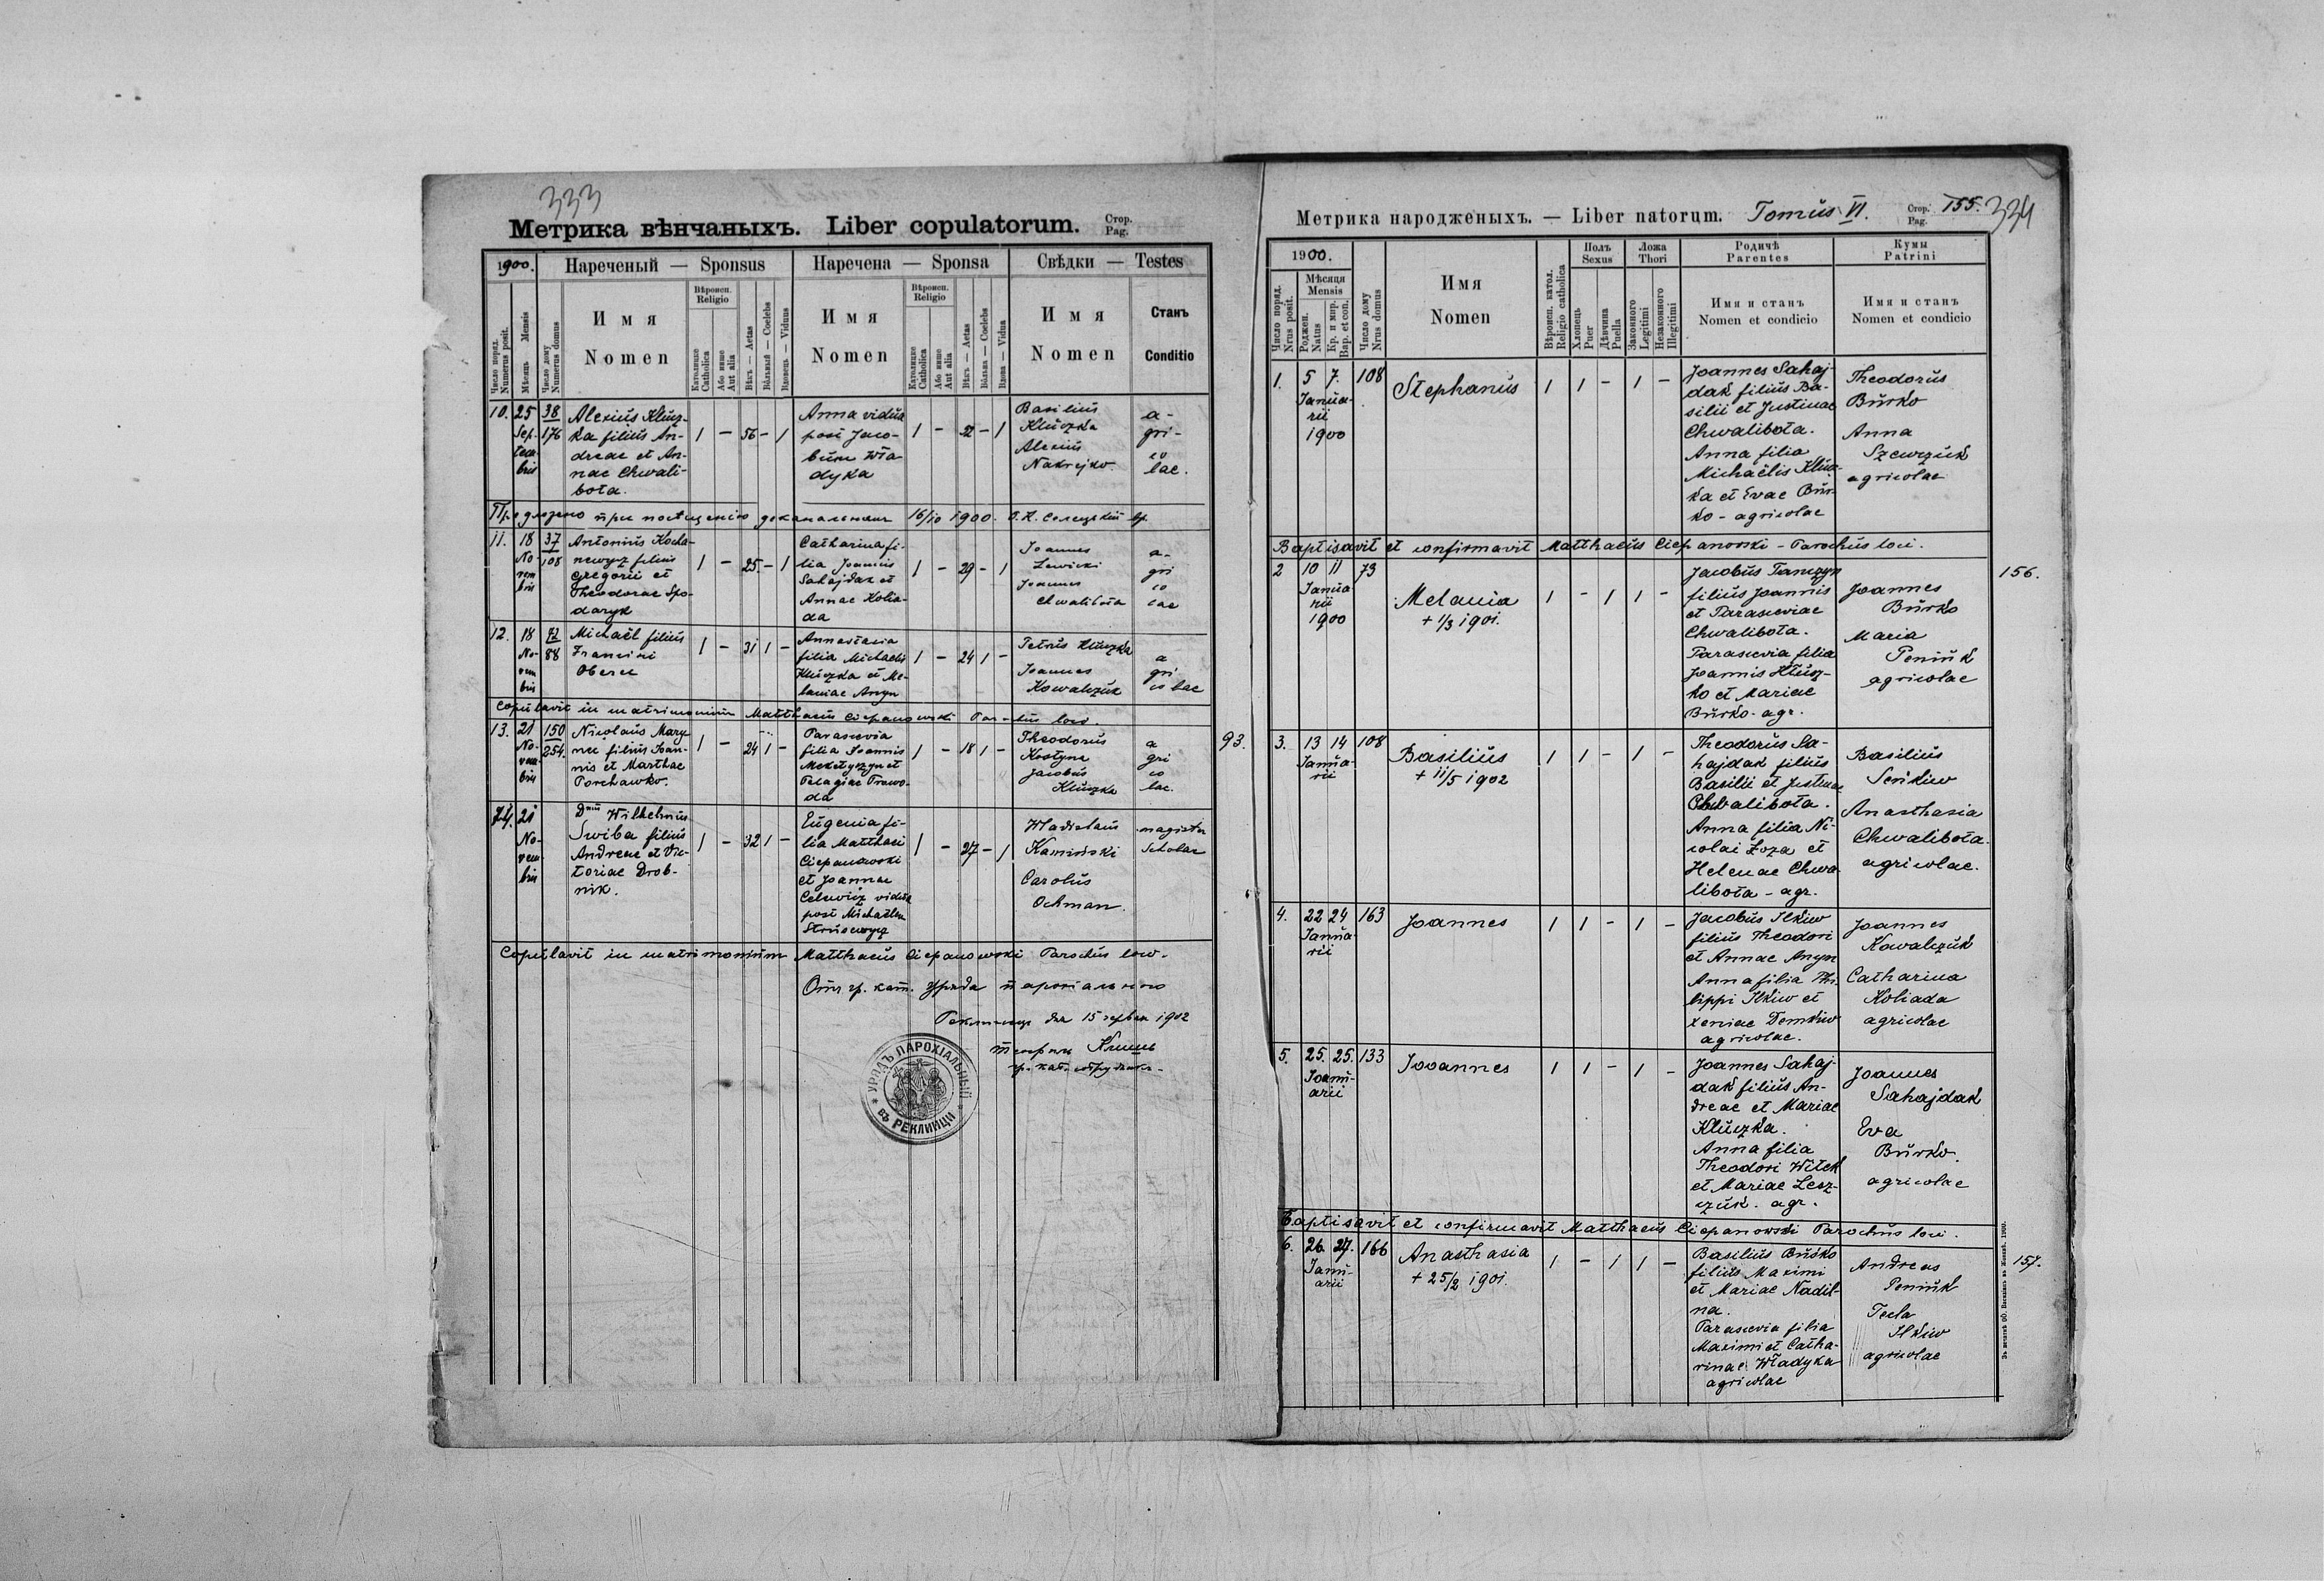 333
Метрика вѣнчаныхъ. Liber copulatorum.
Стор.
Pag.
1900.
Нареченый — Sponsus
Наречена — Sponsa
Свѣдки — Testes
Число поряд.
Numerus posit.
Мѣсяць Mensis
Число дому
Numerus domus
Имя
Nomen
Вѣроисп.
Religio
Католицке
Catholica
Або инше
Aut alia
Вѣкъ — Aetas
Вольный — Coelebs
Вдовець — Viduus
Имя
Nomen
Вѣроисп.
Religio
Католицке
Catholica
Або инше
Aut alia
Вѣкъ — Aetas
Вольна — Coelebs
Вдова — Vidua
Имя
Nomen
Станъ
Conditio
10. 25 Septembris
38
176
Alexius Klucz-
ka filius An-
dreae et An-
nae Chwali-
bota.
1 — 56 — 1
Anna vidua
post Jaco-
bum Wła-
dyka
1 — — 1
Basilius
Kluczka
Alexius
Nakrejko
a-
gri-
co
lae.
16/10 1900.
11. 18 Novembris
37
108
Antonius Kocha-
newyz filius
Gregorii et
Theodorae Spo-
daryk
1 — 25. — 1
Catharina fi-
lia Joannis
Sahajdak et
Annae Kolia-
da
1 — 29 — 1
Joannes
Lewicki
Joannes
Chwalibota
a-
gri
co
lae
12. 18 Novembris
88
Michaël filius
Francisci
Oberec
1 — 31 1 —
Annastasia
filia Michaelis
Kluczka et Me-
laniae Anyn
1 — 24 1 —
Petrus Kluczka
Joannes
Kowalczuk
a
gri
co lae
Copulavit in matrimonium Matthaeus Ciepanowski Parochus loci.
13. 21 Novembris
150
254.
Nicolaus Mary
niec filius Joan-
nis et Marthae
Porchawko.
1 — 24 1 —
Parascevia
filia Joannis
Meketyczyn et
Pelagiae Prawo-
da
1 — 18 1 —
Theodorus
Kostyna
Jacobus
Kluczka
a
gri
co
lae.
93.
14. 21 Novembris
Wilhelmus
Swiba filius
Andreae et Vic-
toriae Drob-
nik.
1 — 32 1 —
Eugenia fi-
lia Matthaei
Ciepanowski
et Joannae
Celewicz vidua
post Michaëlem
1 — 27 — 1
Wladislaus
Kamiński
Carolus
Ochman.
magister
Scholae
Copulavit in matrimonium Matthaeus Ciepanowski Parochus loci.
Отъ гр. кат. уряда парохіального
Реклинець дня 15 червня 1902
УРЯДЪ ПАРОХІАЛЬНЫЙ
ВЪ РЕКЛИНЦИ
Метрика народженыхъ. — Liber natorum. Tomus VI.
Стор.
Pag.
155. 334
1900.
Число поряд.
Nrus posit.
Мѣсяця
Mensis
Роджен.
Natus
Кр. и мир.
Bap. et con.
Число дому
Nrus domus
Имя
Nomen
Вѣроисп. катол.
Religio catholica
Полъ
Sexus
Хлопець
Puer
Дѣвчина
Puella
Ложа
Thori
Законного
Legitimi
Незаконного
Illegitimi
Родичѣ
Parentes
Имя и станъ
Nomen et condicio
Кумы
Patrini
Имя и станъ
Nomen et condicio
1. 5 7. 108
Janua-
rii
1900
Stephanus
1 1 — 1 —
Joannes Sahaj-
dak filius Ba-
silii et Justinae
Chwalibota.
Anna filia
Michaëlis Klucz-
ka et Evae Bur-
ko - agricolae
Theodorus
Burko
Anna
Szewczuk
agricolae
Baptisavit et confirmavit Matthaeus Ciepanowski - Parochus loci.
2 10 11 73
Janua
rii
1900
Melania
+ 1/3 1901.
1 — 1 1 —
Jacobus Tanczyn
filius Joannis
et Parasceviae
Chwalibota.
Parascevia filia
Joannis Klucz-
ko et Mariae
Burko - agr.
Joannes
Burko
Maria
Peniuk
agricolae
156.
3. 13 14 108
Janua-
rii
Basilius
+ 11/5 1902
1 1 — 1 —
Theodorus Sa-
hajdak filius
Basilii et Justinae
Chwalibota.
Anna filia Ni-
colai Łoza et
Helenae Chwa
libota - agr.
Basilius
Seńkiw
Anasthasia
Chwalibota.
agricolae.
4. 22 24 163
Janua-
rii
Joannes
1 1 — 1 —
Jacobus Ilkiw
filius Theodori
et Annae Anyn
Anna filia Phi
lippi Ilkiw et
Xeniae Demkiw
agricolae.
Joannes
Kowalczuk
Catharina
Koliada
agricolae
5. 25. 25. 133
Janu-
arii
Jooannes
1 1 — 1 —
Joannes Sahaj-
dak filius An-
dreae et Mariae
Kluczka.
Anna filia
Theodori Witek
et Mariae Lesz-
czuk. agr.
Joannes
Sahajdak
Eva
Burko.
agricolae
Baptisavit et confirmavit Matthaeus Ciepanowski Parochus loci.
6. 26. 27. 166
Janu-
arii
Anasthasia
+ 25/2 1901.
1 — 1 1 —
Basilius Burko
filius Maximi
et Mariae Nadil-
na.
Parascevia filia
Maximi et Catha-
rinae Władyka
agricolae
Andreas
Peniuk
Tecla
Ilkiw
agricolae
157.